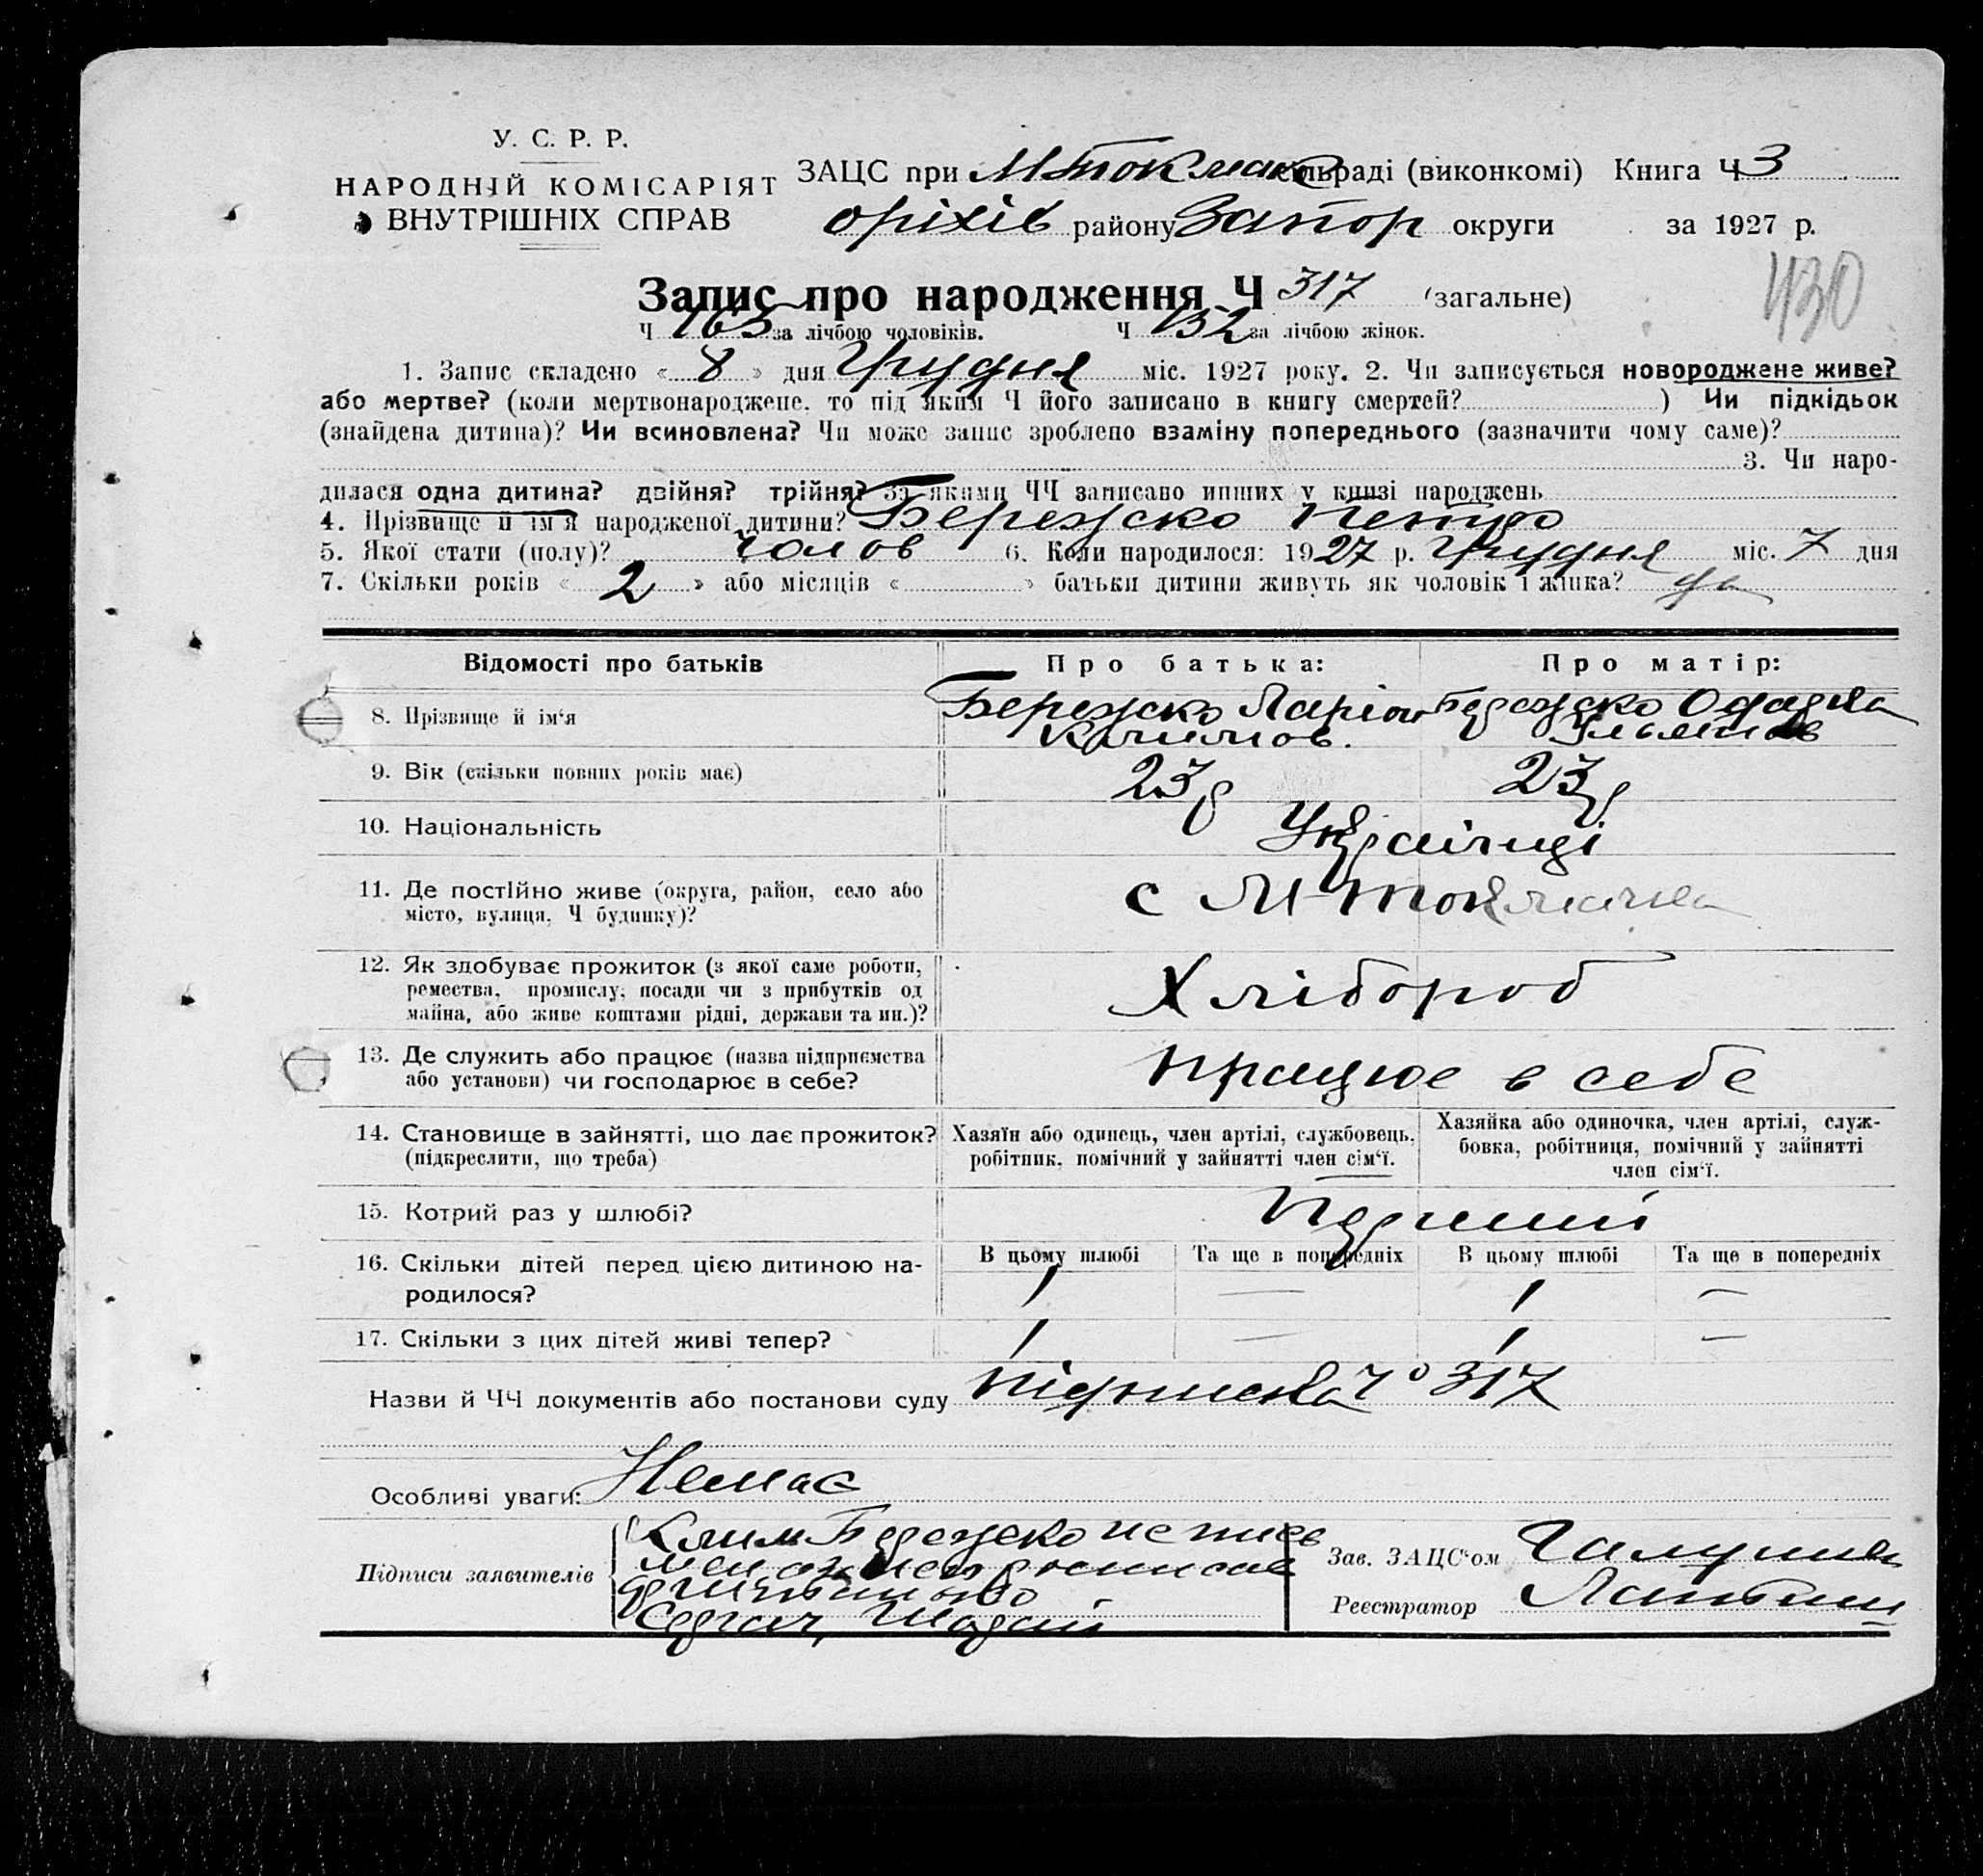 У. С. Р. Р.
НАРОДНІЙ КОМІСАРІЯТ
ВНУТРІШНІХ СПРАВ
ЗАЦС при М Токмак сільраді (виконкомі) Книга Ч 3
оріхів району Запор округи за 1927 р.
430
Запис про народження Ч 317 (загальне)
Ч 165 за лічбою чоловіків. Ч 152 за лічбою жінок.
1. Запис складено « 8 » дня Грудня міс. 1927 року. 2. Чи записується новороджене живе?
або мертве? (коли мертвонароджене, то під яким Ч його записано в книгу смертей? ) Чи підкідьок
(знайдена дитина)? Чи всиновлена? Чи може запис зроблено взаміну попереднього (зазначити чому саме)?
3. Чи наро-
дилася одна дитина? двійня? трійня? За якими ЧЧ записано инших у книзі народжень
4. Прізвище й ім'я народженої дитини? Бережко Петро
5. Якої стати (полу)? чолов 6. Коли народилося: 1927 р. Грудня міс. 7 дня
7. Скільки років « 2 » або місяців « » батьки дитини живуть як чоловік і жінка? да
Відомості про батьків Про батька: Про матір:
8. Прізвище й ім'я Бережко Ларіон Бережко
Климов.
9. Вік (скільки повних років має) 23 р 23 р
10. Національність Українці
11. Де постійно живе (округа, район, село або
місто, вулиця, Ч будинку)? с М-Токмачка
12. Як здобуває прожиток (з якої саме роботи,
ремества, промислу, посади чи з прибутків од
майна, або живе коштами рідні, держави та ин.)? Хлібороб
13. Де служить або працює (назва підприємства
або установи) чи господарює в себе? працює в себе
14. Становище в зайнятті, що дає прожиток?
(підкреслити, що треба)
Хазяїн або одинець, член артілі, службовець,
робітник, помічний у зайнятті член сім'ї.
Хазяйка або одиночка, член артілі, служ-
бовка, робітниця, помічний у зайнятті
член сім'ї.
15. Котрий раз у шлюбі? Перший
16. Скільки дітей перед цією дитиною на-
родилося?
В цьому шлюбі Та ще в попередніх В цьому шлюбі Та ще в попередніх
1 — 1 —
17. Скільки з цих дітей живі тепер? 1 — 1 —
Назви й ЧЧ документів або постанови суду підписка Ч° 317
Особливі уваги: Немає
Підписи заявителів Клим Бережко
Зав. ЗАЦС'ом
Реєстратор